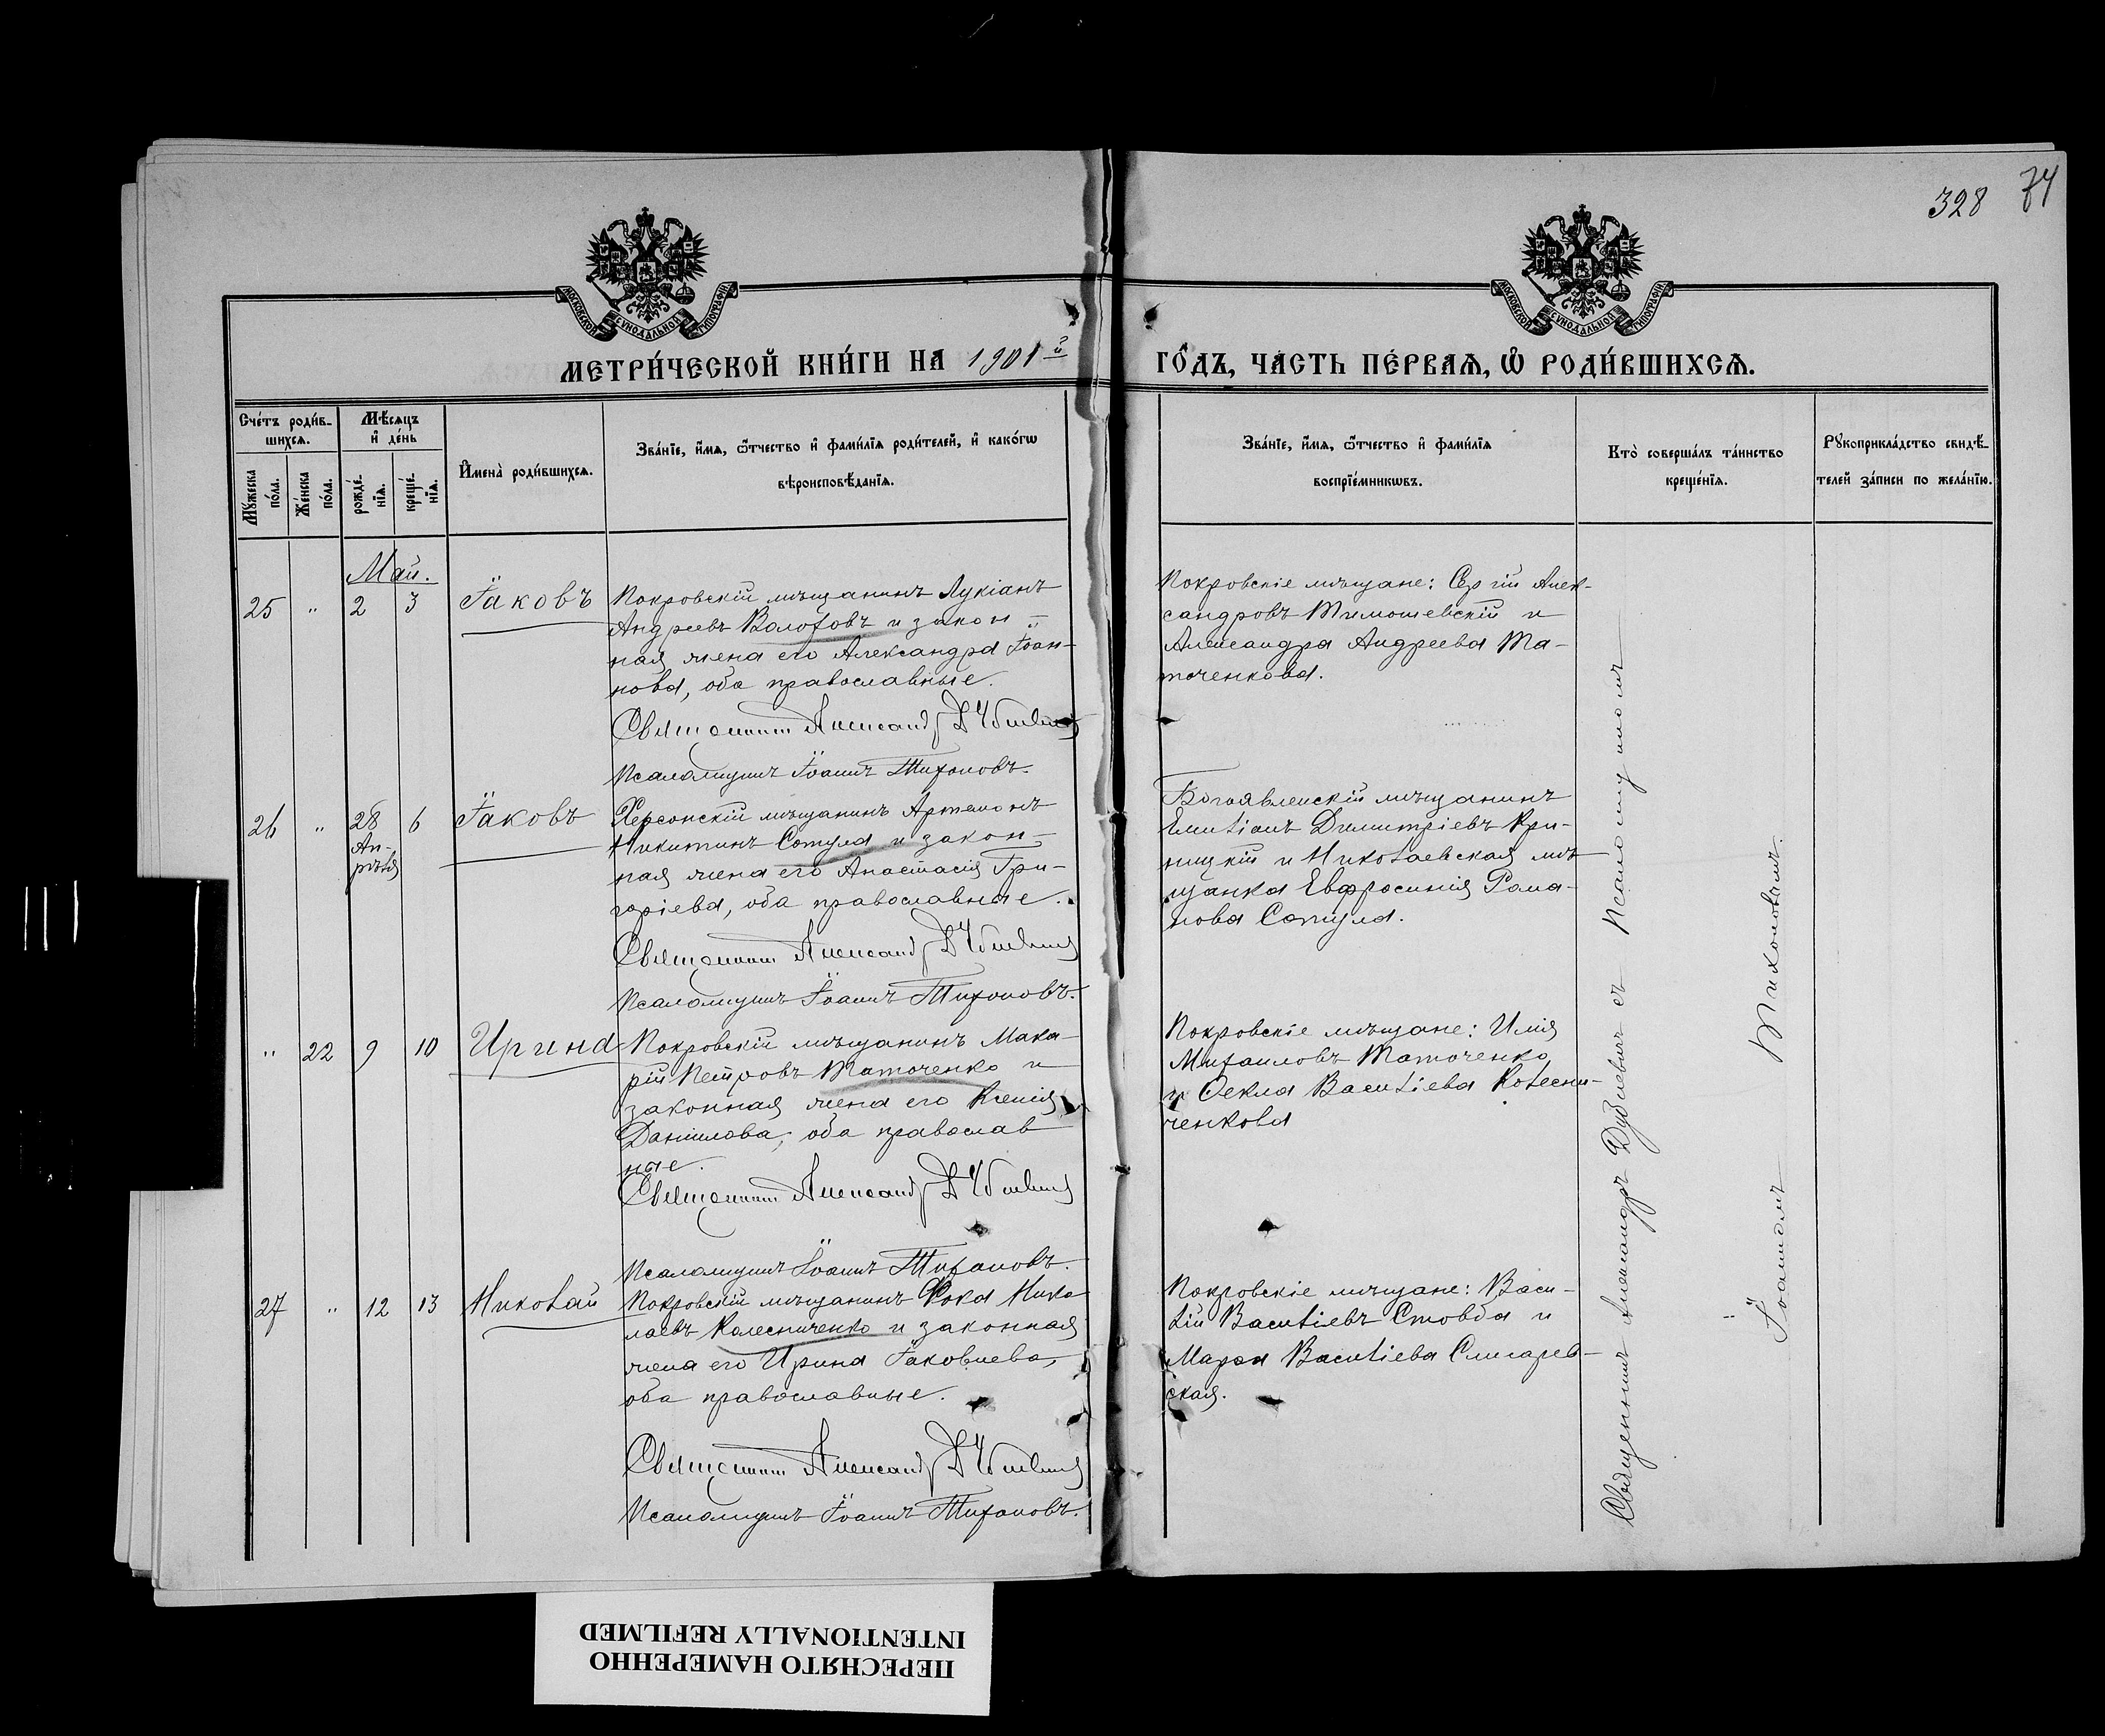 328 74
МОСКОВСКОЙ СѴНОДАЛЬНОЙ ТИПОГРАФІИ
МОСКОВСКОЙ СѴНОДАЛЬНОЙ ТИПОГРАФІИ
МЕТРИ́ЧЕСКОЙ КНИ́ГИ НА 1901й ГО́ДЪ, ЧА́СТЬ ПЕ́РВАѦ, Ѽ РОДИ́ВШИХСѦ.
Сче́тъ роди́в-
шихсѧ.
Мѣ́сѧцъ
и҆ де́нь
Мꙋ́жеска
по́ла.
Же́нска
по́ла.
рожде́-
нїѧ.
креще́-
нїѧ.
И҆мена̀ роди́вшихсѧ.
Зва́нїе, и҆́мѧ, ѻ҆́тчество и҆ фами́лїѧ роди́телей, и҆ како́гѡ
вѣроисповѣ́данїѧ.
Зва́нїе, и҆́мѧ, ѻ҆́тчество и҆ фами́лїѧ
воспрїе́мникѡвъ.
Кто̀ соверша́лъ та́инство
креще́нїѧ.
Рꙋкоприкла́дство свидѣ́-
телей за́писи по жела́нїю.
Май.
25 " 2 3 Іаковъ
Покровскій мѣщанинъ Лукіанъ
Андреевъ Волоховъ и закон-
ная жена его Александра Іоан-
нова, оба православные.
Священникъ Александръ Дубневичъ
Псаломщикъ Іоаннъ Тихоновъ.
Покровскіе мѣщане: Сергій Алек-
сандровъ Тимошевскій и
Александра Андреева Та-
точенкова.
26 " 28 6 Іаковъ
Ап-
рѣля
Херсонскій мѣщанинъ Артемонъ
Никитинъ Сотула и закон-
ная жена его Анастасія Гри-
горіева, оба православные.
Священникъ Александръ Дубневичъ
Псаломщикъ Іоаннъ Тихоновъ.
Богоявленскій мѣщанинъ
Емиліанъ Димитріевъ Кри-
ницкій и Николаевская мѣ
щанка Евфросинія Рома-
нова Сотула.
" 22 9 10 Ирина
Покровскій мѣщанинъ Мака-
рій Петровъ Таточенко и
законная жена его Ксенія
Даніилова, оба православ
ные.
Священникъ Александръ Дубневичъ
Псаломщикъ Іоаннъ Тихоновъ.
Покровскіе мѣщане: Илія
Михаиловъ Таточенко
и Ѳекла Василіева Колесни-
ченкова
27 " 12 13 Николай
Покровскій мѣщанинъ Фока Нико
лаевъ Колесниченко и законная
жена его Ирина Іаковлева,
оба православные.
Священникъ Александръ Дубневичъ
Псаломщикъ Іоаннъ Тихоновъ.
Покровскіе мѣщане: Васи-
лій Василіевъ Стовба и
Марѳа Василіева Слисарев-
ская.
Священникъ Александръ Дубневичъ съ Псаломщикомъ
Іоанномъ Тихоновымъ.
ПЕРЕСНЯТО НАМЕРЕННО
INTENTIONALLY REFILMED